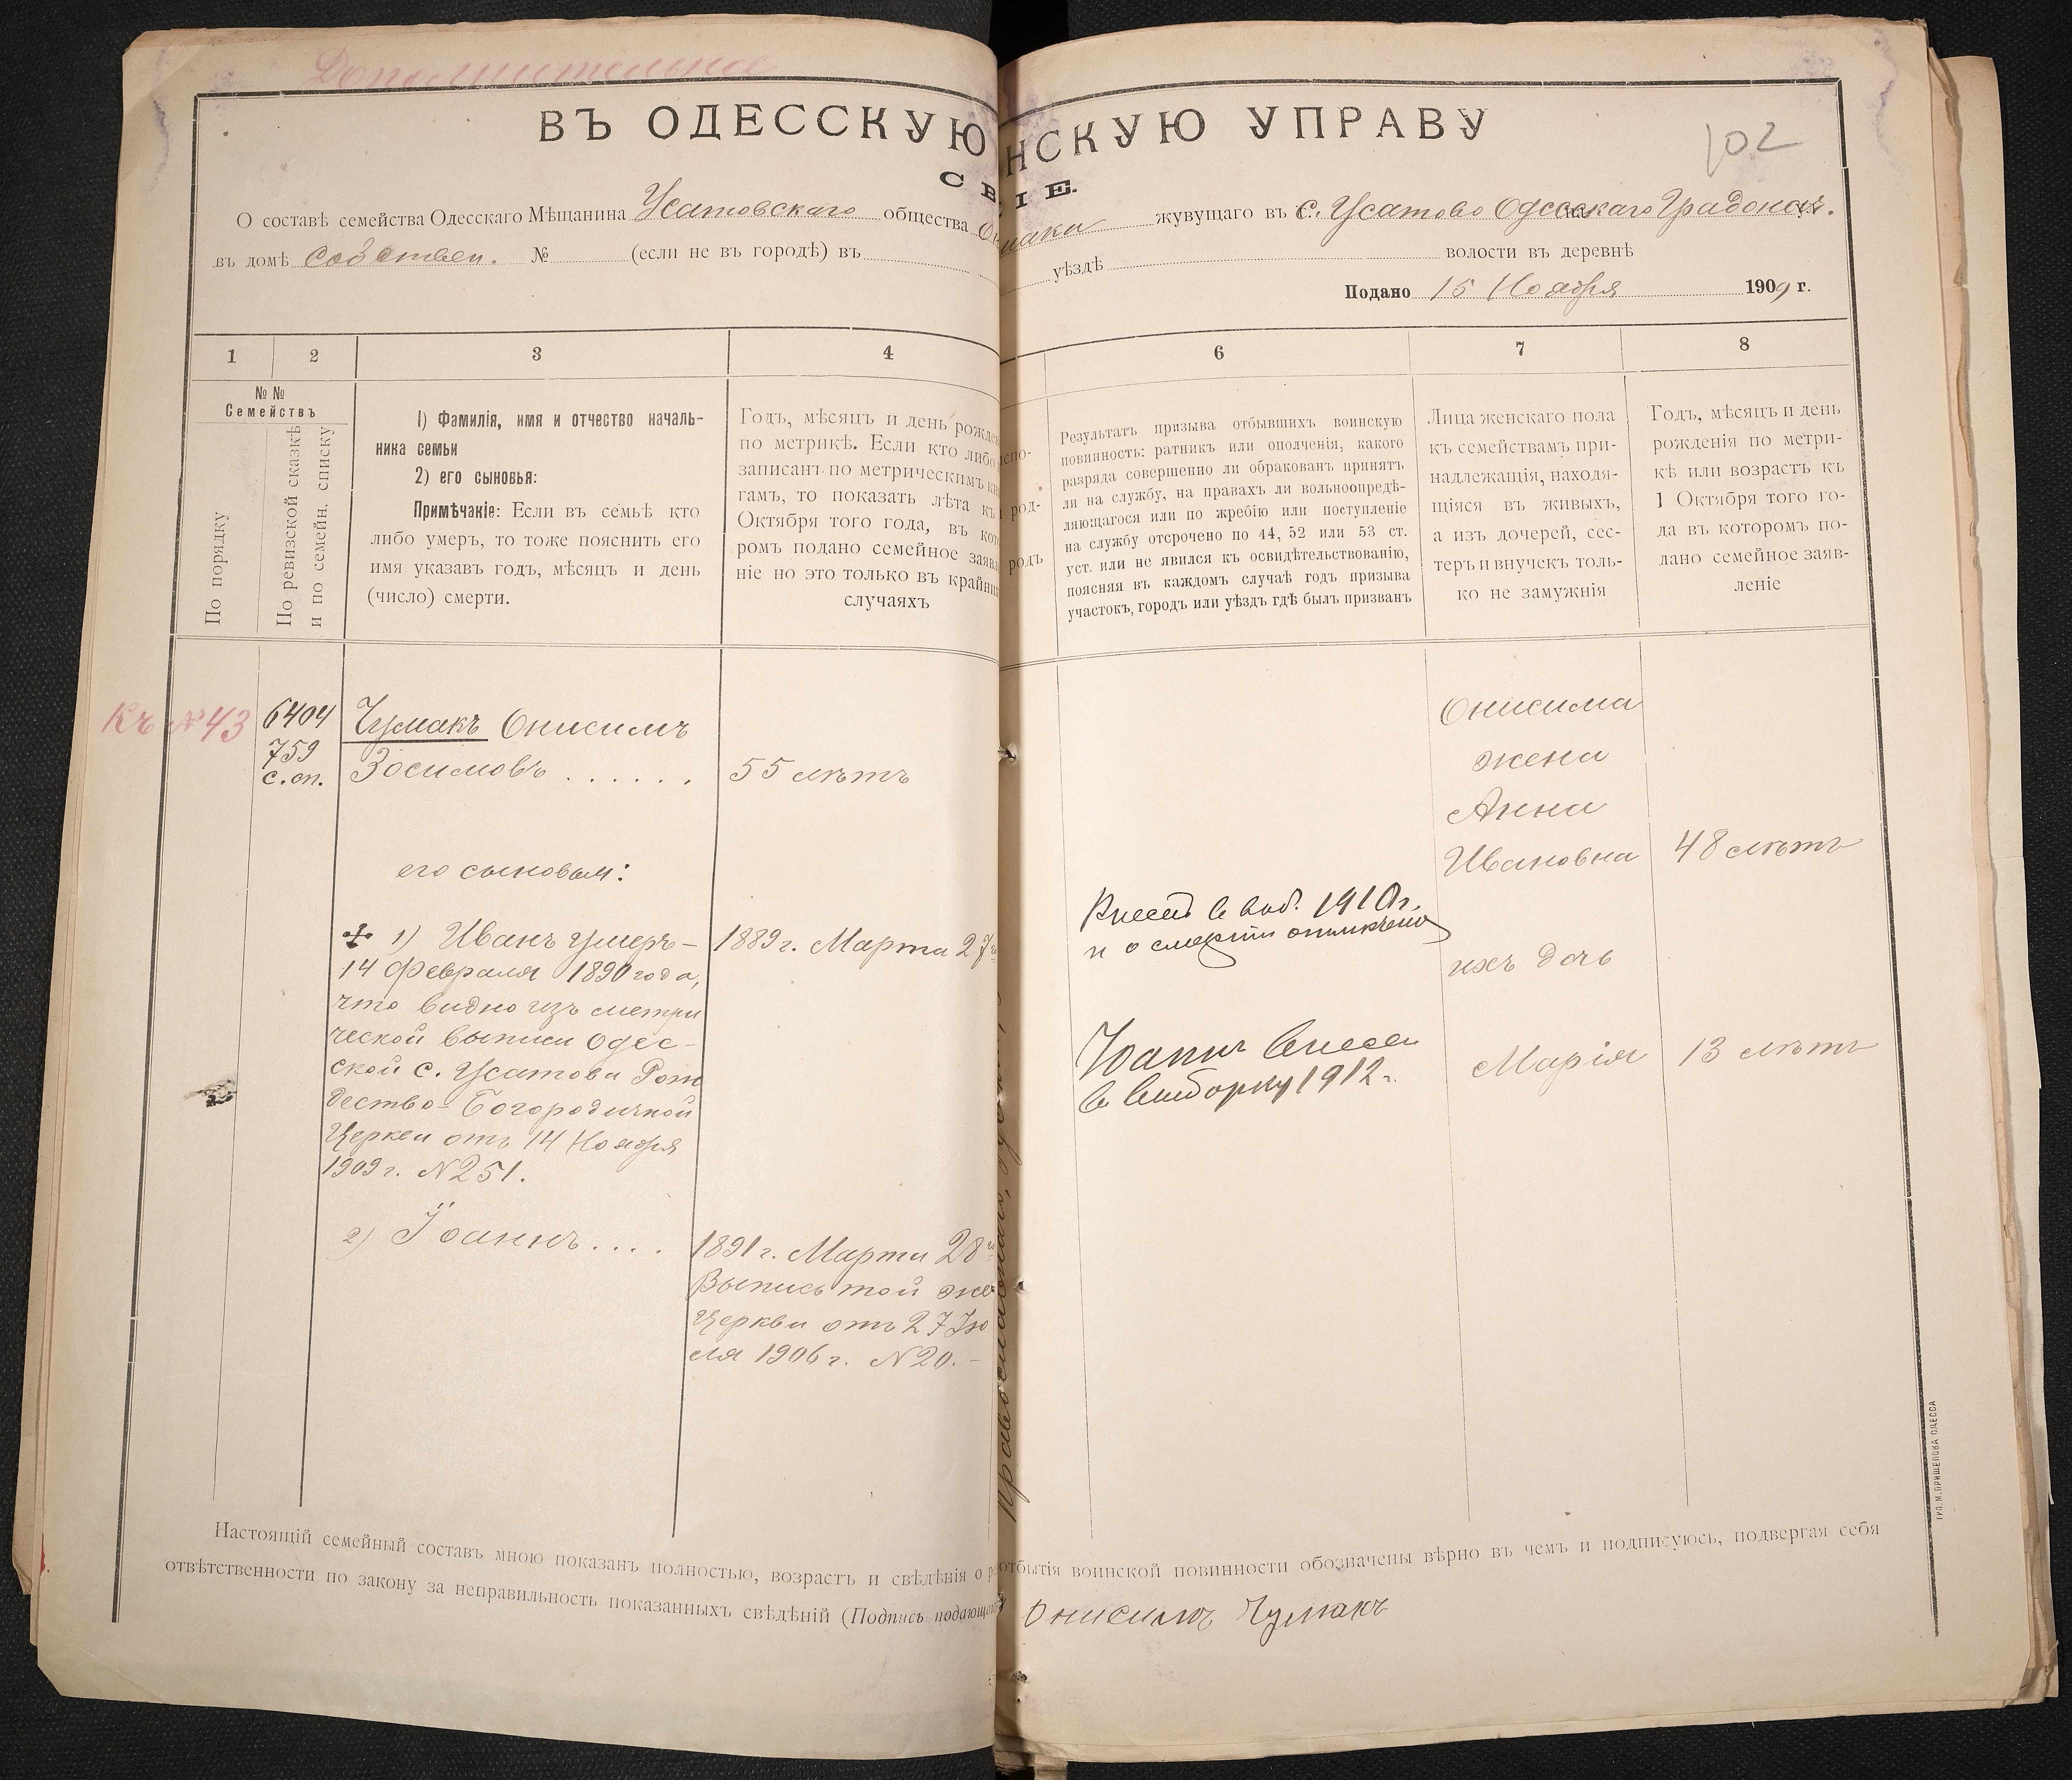 Дополнительное
ВЪ ОДЕССКУЮ НСКУЮ УПРАВУ
102
С В ІЕ.
О составѣ семейства Одесскаго Мѣщанина Усатовскаго общества Он мака жувущаго въ с. Усатово Одесскаго Градонач.
въ домѣ собствен. № (если не въ городѣ) въ уѣздѣ волости въ деревнѣ
Подано 15 Ноября 1909 г.
1 2 3 4 6 7 8
№ №
Семействъ
По порядку
По ревизской сказкѣ
и по семейн. списку
1) Фамилія, имя и отчество началь-
ника семьи
2) его сыновья:
Примѣчаніе: Если въ семьѣ кто
либо умеръ, то тоже пояснить его
имя указавъ годъ, мѣсяцъ и день
(число) смерти.
Годъ, мѣсяцъ и день рожде
по метрикѣ. Если кто либо
записанъ по метрическимъ кн
гамъ, то показать лѣта къ
Октября того года, въ кот
ромъ подано семейное заяв
ніе но это только въ крайни
случаяхъ
спо-
род-
родъ
Результатъ призыва отбывшихъ воинскую
повинность: ратникъ или ополченія, какого
разряда совершенно ли обракованъ принятъ
ли на службу, на правахъ ли вольноопредѣ-
ляющагося или по жребію или поступленіе
на службу отсрочено по 44, 52 или 53 ст.
уст. или не явился къ освидѣтельствованію,
поясняя въ каждомъ случаѣ годъ призыва
участокъ, городъ или уѣздъ гдѣ былъ призванъ
Лица женскаго пола
къ семействамъ при-
надлежащія, находя-
щіяся въ живыхъ,
а изъ дочерей, сес-
теръ и внучекъ толь-
ко не замужнія
Годъ, мѣсяцъ и день
рожденія по метри-
кѣ или возрастъ къ
1 Октября того го-
да въ которомъ по-
дано семейное заяв-
леніе
Къ №43
6404
759
с.сп.
Чумакъ Онисимъ
Зосимовъ . . . . . .
55 лѣтъ
его сыновья:
1) Иванъ умеръ –
14 Февраля 1890 года,
что видно изъ метри
ческой выписи Одес-
ской с. Усатова Рож
дество-Богородичной
Церкви отъ 14 Ноября
1909 г. №251.
1889 г. Марта 27
2) Іоаннъ . . . .
1891 г. Марта 28
Выпись той же
Церкви отъ 27 Ію
ля 1906 г. №20. –
Внесенъ в выб. 1910 г.
и о смерти отмѣчено
Іоаннъ внесен
в выборку 1912 г.
Онисима
жена
Анна
Ивановна
48 лѣтъ
ихъ дочь
Марія
13 лѣтъ
Настоящій семейный составъ мною показанъ полностью, возрастъ и свѣдѣнія о отбытія воинской повинности обозначены вѣрно въ чемъ и подписуюсь, подвергая себя
отвѣтственности по закону за неправильность показанныхъ свѣдѣній (Подпись подающ Онисимъ Чумакъ
ТИП. М. ПРИЩЕПОВА ОДЕССА